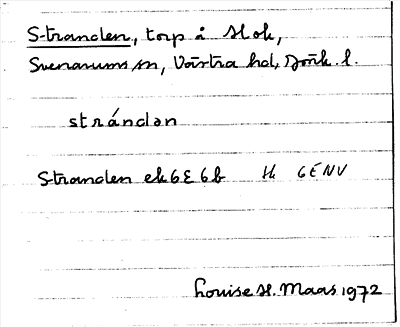 Stranden, torp å Stok,
Svenarums sn, Västra hd, Jönk. l.
strándən
Stranden ek 6E6b H. 6ENV
Louise H. Maas 1972